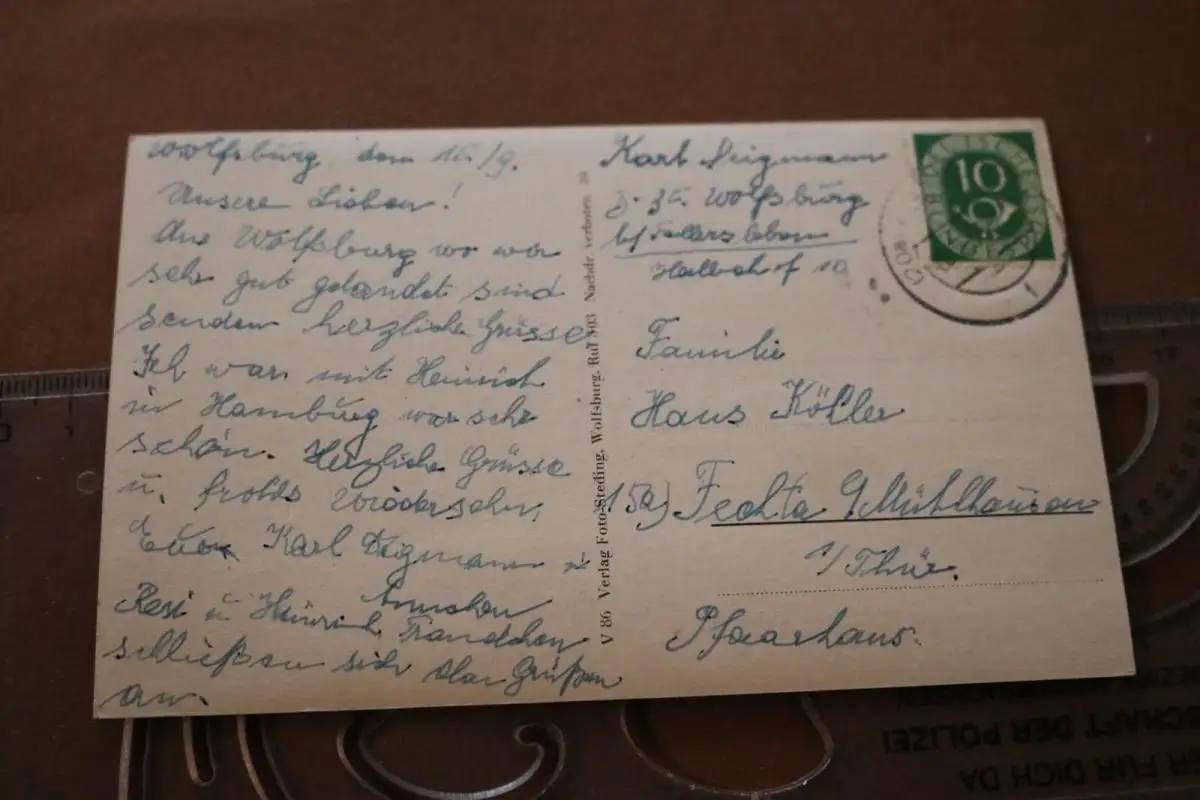 Wolfsburg, den 15./9.
Unsere Lieben!
Aus Wolfsburg wo wir
sehr gut gelandet sind
senden herzliche Grüsse
Ich war mit Heinrich
in Hamburg war sehr
schön. Herzliche Grüsse
u. frohes Wiedersehn,
Euer Karl
Annchen
Resi u Heinrich
schließen sich den Grüßen
an.
V 86 Verlag Foto-Steding, Wolfsburg, Ruf 303 Nachdr. verboten
Karl
z. Zt. Wolfsburg
b/ Fallersleben
10
DEUTSCHE BUNDESPOST
10
Familie
Hans Köhler
15a) Fechta b/Mühlhausen
i/Thür.
Pfaarhaus.
SCHAFT DER POLIZEI
ER FÜR DICH DA